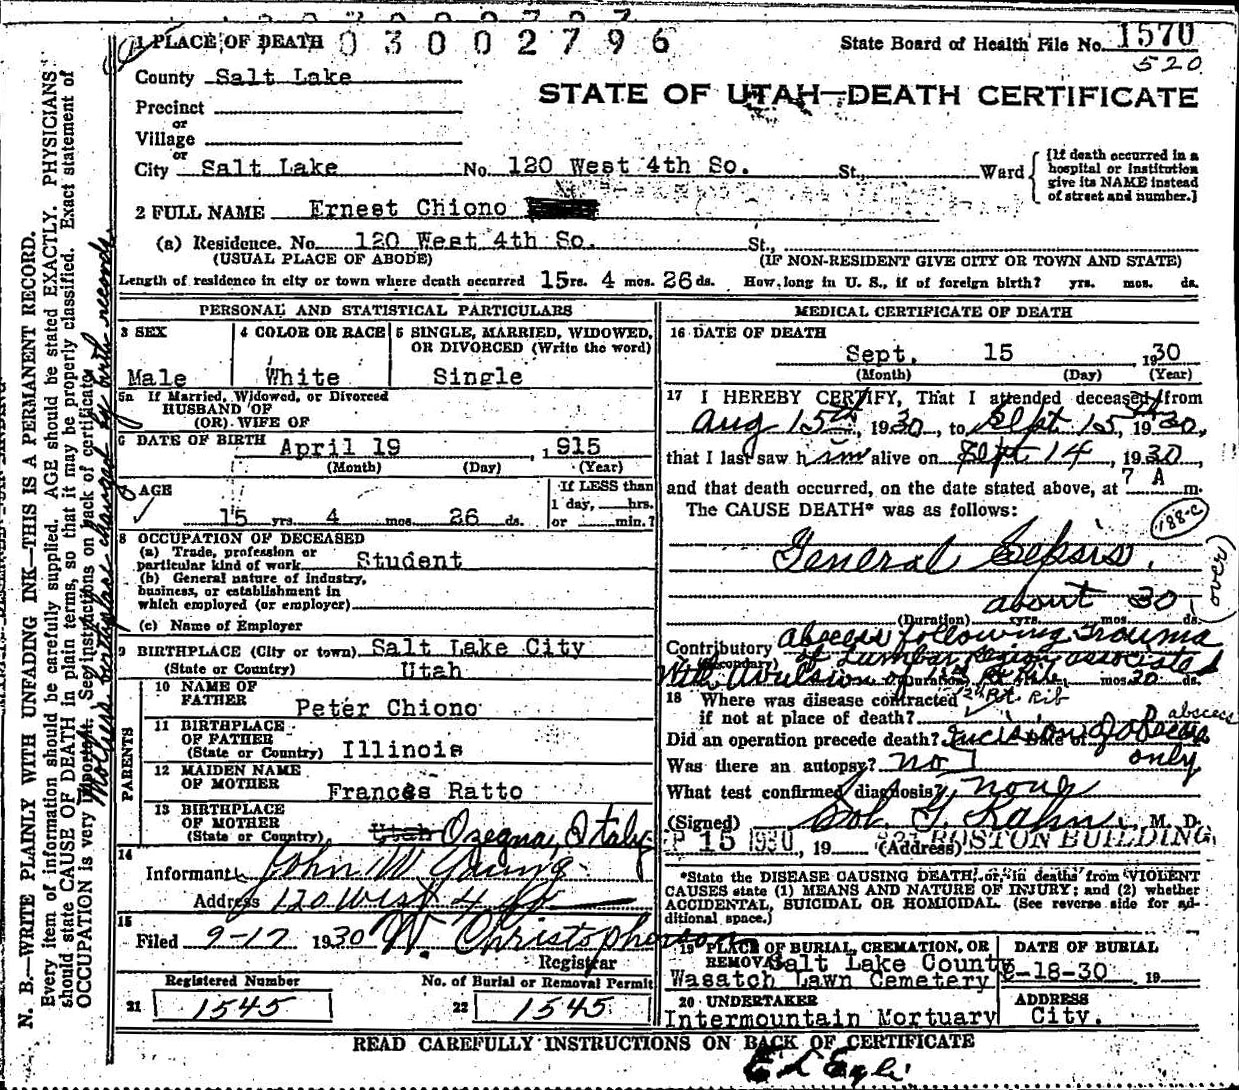 1 PLACE OF DEATH 03002796
State Board of Health File No. 1570
520
County Salt Lake
STATE OF UTAH—DEATH CERTIFICATE
Precinct
or
Village
or
City Salt Lake No. 120 West 4th So. St., Ward
[If death occurred in a hospital or institution give its NAME instead of street and number.]
2 FULL NAME Ernest Chiono
(a) Residence. No. 120 West 4th So. St.,
(USUAL PLACE OF ABODE) (IF NON-RESIDENT GIVE CITY OR TOWN AND STATE)
Length of residence in city or town where death occurred 15 yrs. 4 mos. 26 ds. How long in U. S., if of foreign birth? yrs. mos. ds.
PERSONAL AND STATISTICAL PARTICULARS
3 SEX
Male
4 COLOR OR RACE
White
5 SINGLE, MARRIED, WIDOWED,
OR DIVORCED (Write the word)
Single
5a If Married, Widowed, or Divorced
HUSBAND OF
(OR) WIFE OF
6 DATE OF BIRTH April 19, 1915
(Month) (Day) (Year)
7 AGE
15 yrs. 4 mos. 26 ds.
If LESS than
1 day, hrs.
or min.?
8 OCCUPATION OF DECEASED
(a) Trade, profession or
particular kind of work Student
(b) General nature of industry,
business, or establishment in
which employed (or employer)
(c) Name of Employer
9 BIRTHPLACE (City or town) Salt Lake City
(State or Country) Utah
PARENTS
10 NAME OF
FATHER Peter Chiono
11 BIRTHPLACE
OF FATHER
(State or Country) Illinois
12 MAIDEN NAME
OF MOTHER Frances Ratto
13 BIRTHPLACE
OF MOTHER
(State or Country) Utah Ozegna, Italy
14
Informant John W. Young
Address 120 West 4 So
15
Filed 9-17 1930 W. Christopherson
Registrar
Registered Number
21 1545
No. of Burial or Removal Permit
22 1545
MEDICAL CERTIFICATE OF DEATH
16 DATE OF DEATH
Sept. 15 1930
(Month) (Day) (Year)
17 I HEREBY CERTIFY, That I attended deceased from
Aug 15th, 1930, to Sept 15th, 1930,
that I last saw him alive on Sept. 14, 1930,
and that death occurred, on the date stated above, at 7 A m.
The CAUSE DEATH* was as follows:
188-c
General Sepsis.
(over)
about 30
(Duration) yrs. mos. ds.
Contributory abscess following Trauma
(Secondary) of Lumbar region associated
with Avulsion of 12th Rt Rib
(Duration) mos. 30 ds.
18 Where was disease contracted 12th Rt. Rib
if not at place of death?
Did an operation precede death? Incision of abscess
Date of
abscess
only
Was there an autopsy? no
What test confirmed diagnosis? none
(Signed) Sol. G. Kahn, M. D.
P 15 1930, 19 (Address) 921 BOSTON BUILDING
*State the DISEASE CAUSING DEATH, or, in deaths from VIOLENT
CAUSES state (1) MEANS AND NATURE OF INJURY; and (2) whether
ACCIDENTAL, SUICIDAL OR HOMICIDAL. (See reverse side for ad-
ditional space.)
19 PLACE OF BURIAL, CREMATION, OR
REMOVAL Salt Lake County
Wasatch Lawn Cemetery
DATE OF BURIAL
9-18-30 19
20 UNDERTAKER
Intermountain Mortuary
ADDRESS
City.
READ CAREFULLY INSTRUCTIONS ON BACK OF CERTIFICATE
N. B.—WRITE PLAINLY WITH UNFADING INK—THIS IS A PERMANENT RECORD.
Every item of information should be carefully supplied. AGE should be stated EXACTLY. PHYSICIANS
should state CAUSE OF DEATH in plain terms, so that it may be properly classified. Exact statement of
OCCUPATION is very important. See instructions on back of certificate.
Mothers birthplace changed by birth records.